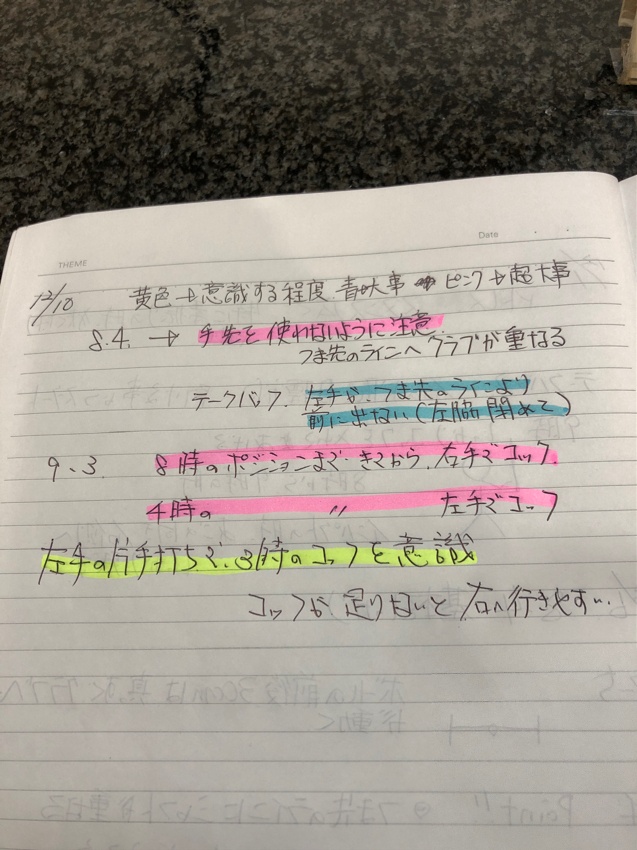 THEME
Date
12/10 黄色→意識する程度 青→大事 ピンク→超大事
8.4. → 手先を使わないように注意
つま先のラインへクラブが重なる
テークバック. 左手が、つま先のラインより
前に出ない(左脇閉めて)
9.3. 8時のポジションまできてから、左手でコック
4時の 〃 左手でコック
左手の片手打ちで、3時のコックを意識
コックが足りないと右へ行きやすい.